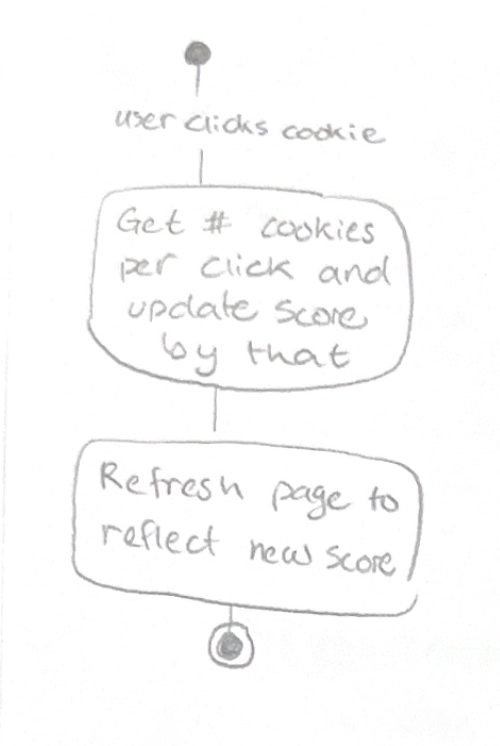 user clicks cookie
Get # cookies
per click and
update score
by that
Refresh page to
reflect new score